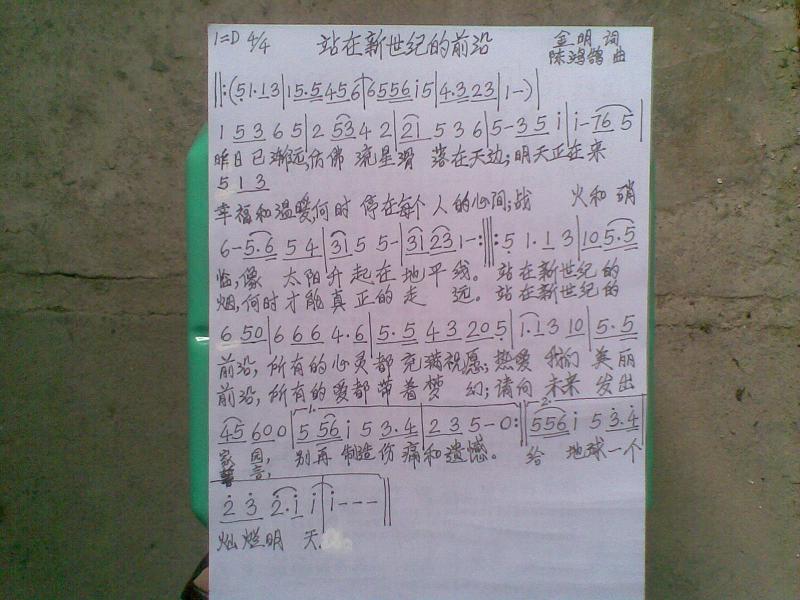 1=D 4/4 站在新世纪的前沿 金明 词
陈鸿鹄 曲
‖:(51·13|15·5456|6556i5|4·323|1-)|
1 53 6 5|2 53 4 2|21 5 3 6|5-35 i|i-76 5|
昨日已渐远,仿佛 流星滑 落在天边;明天正在来
5 1 3
幸福和温暖,何时 停在每个 人的心间;战 火和 硝
6-5·6 5 4|31 5 5-|31 23 1-:‖:5 1·1 3|10 5·5
临,像 太阳升 起在地平线。站在新世纪的
烟,何时才能真正的走 远。站在新世纪的
6 50|6 6 6 4·6|5·5 43 20 5|1·13 10|5·5
前沿,所有的心灵都 充满祝愿;热爱 我们 美丽
前沿,所有的爱都 带着梦 幻;请向 未来 发出
45 60 0|5 56 i 5 3·4|2 3 5-0:‖556 i 5 3·4|
家 园, 别再 制造伤痛和遗憾。 给 地球一个
音,
2 3 2·i i|i---‖
灿烂明 天.